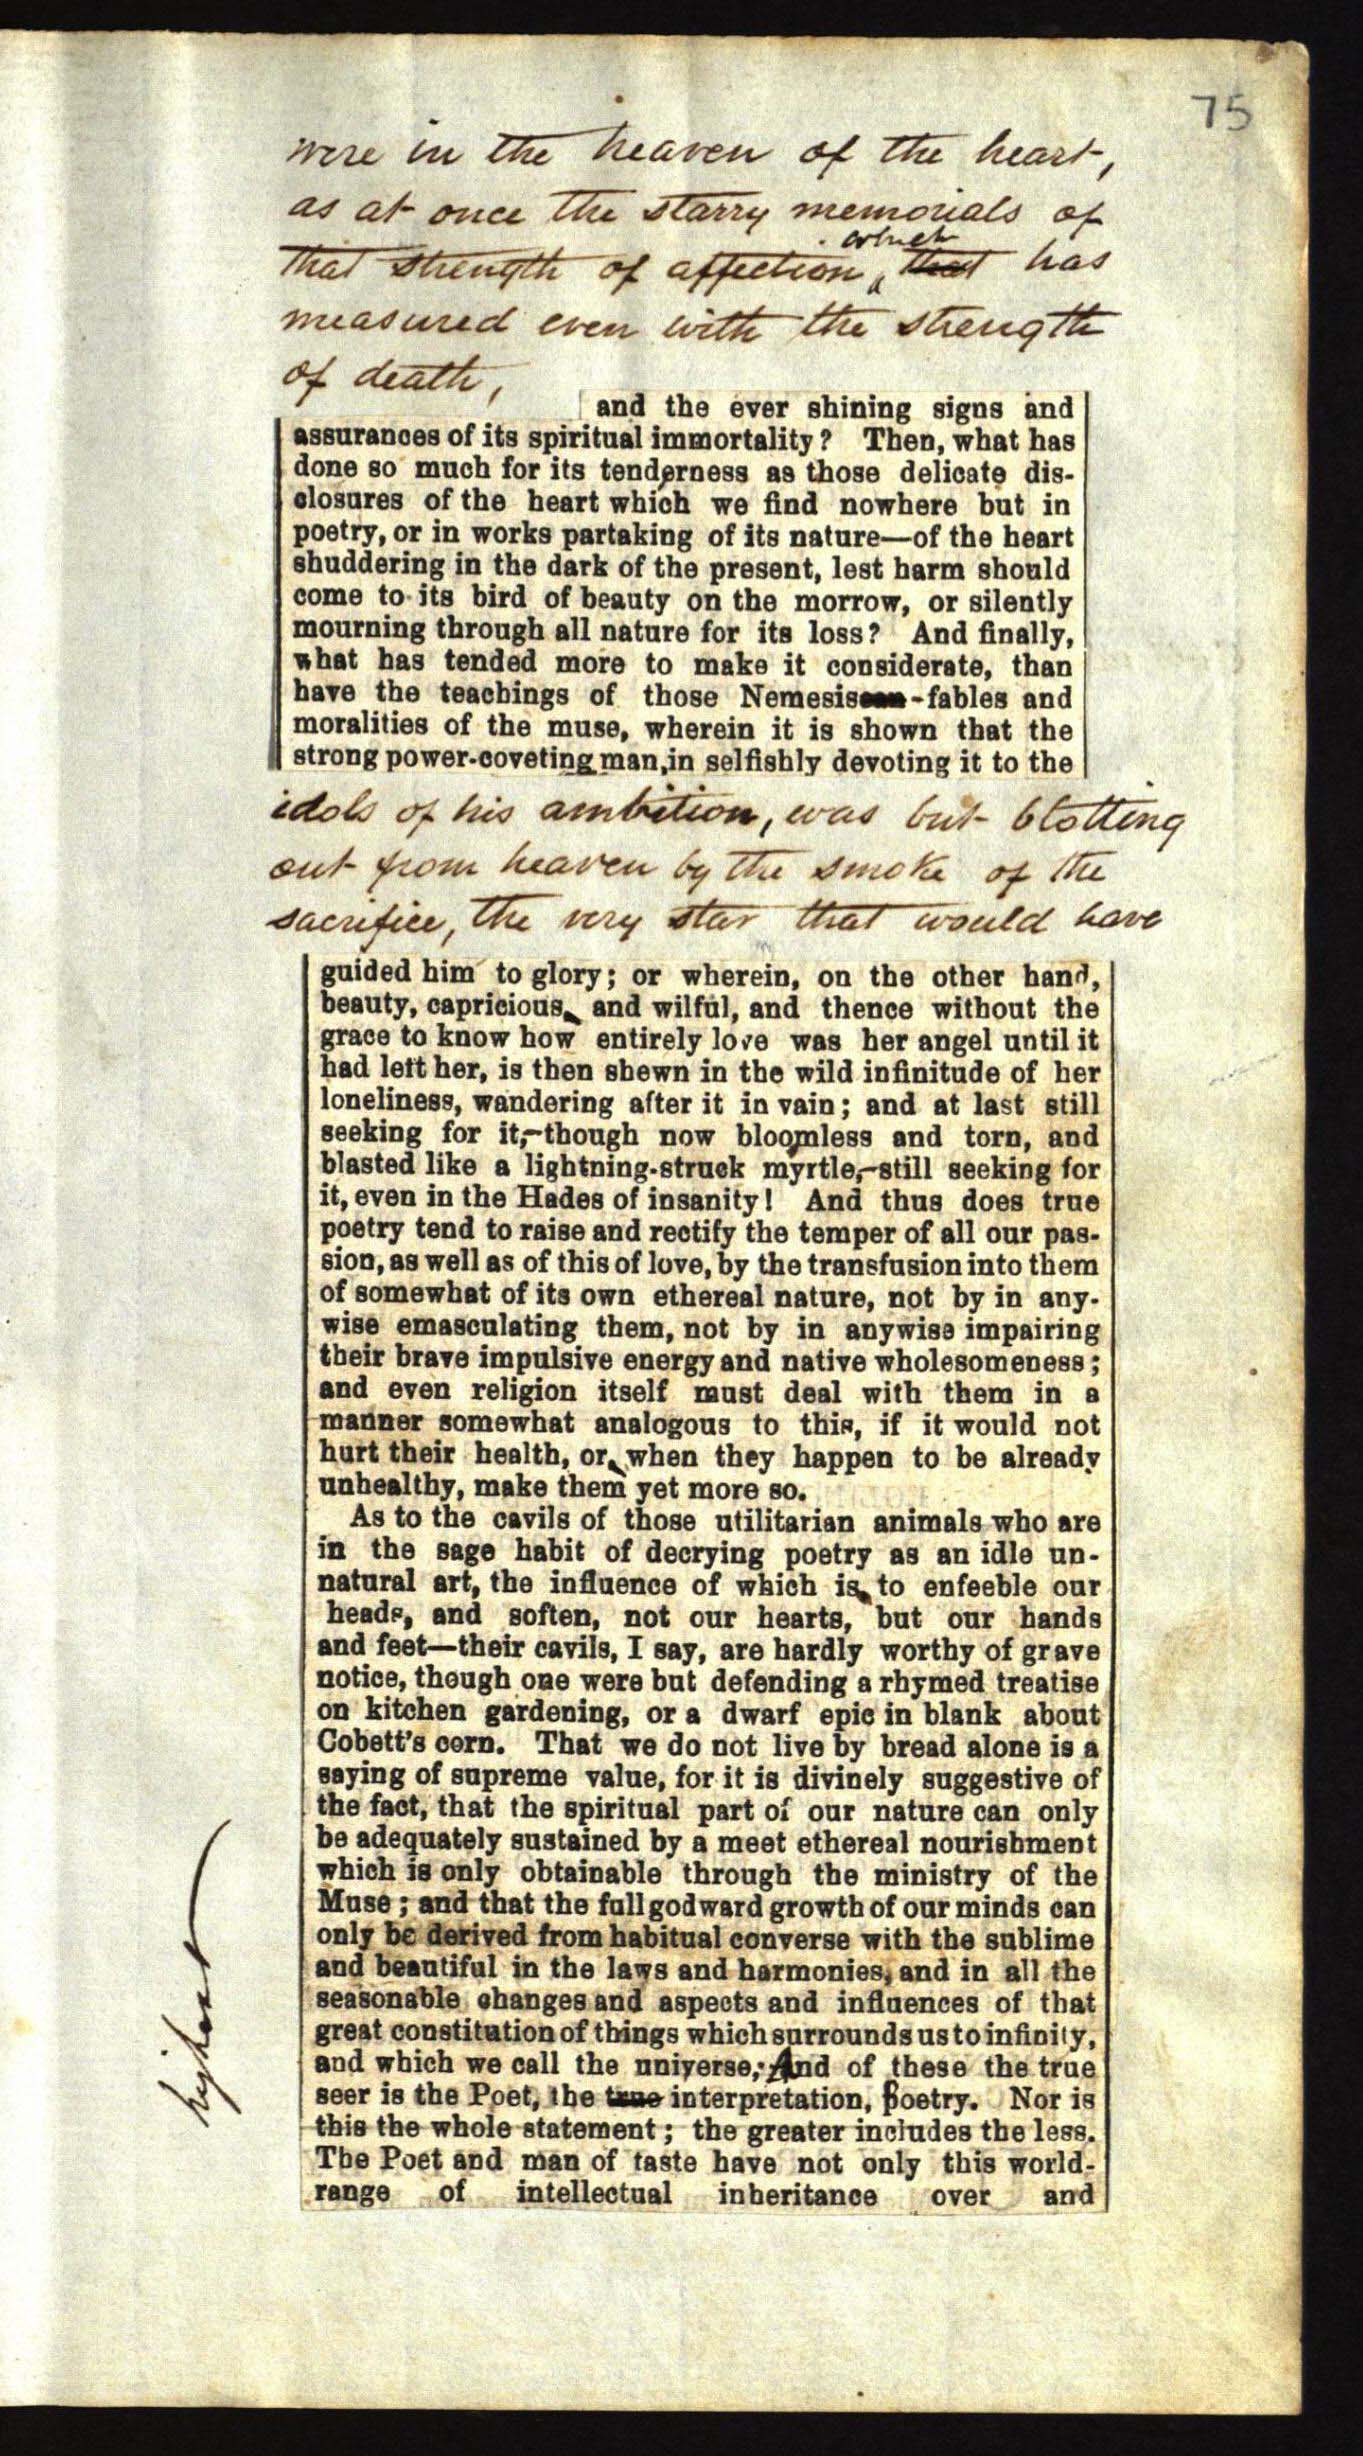 75
were in the heaven of the heart,
as at once the starry memorials of
which
that strength of affection ‸ that has
measured even with the strength
of death,
and the ever shining signs and
assurances of its spiritual immortality? Then, what has
done so much for its tenderness as those delicate dis-
closures of the heart which we find nowhere but in
poetry, or in works partaking of its nature—of the heart
shuddering in the dark of the present, lest harm should
come to its bird of beauty on the morrow, or silently
mourning through all nature for its loss? And finally,
what has tended more to make it considerate, than
have the teachings of those Nemesis-fables and
moralities of the muse, wherein it is shown that the
strong power-coveting man, in selfishly devoting it to the
idols of his ambition, was but blotting
out from heaven by the smoke of the
sacrifice, the very star that would have
guided him to glory; or wherein, on the other hand,
beauty, capricious, and wilful, and thence without the
grace to know how entirely love was her angel until it
had left her, is then shewn in the wild infinitude of her
loneliness, wandering after it in vain; and at last still
seeking for it,—though now bloomless and torn, and
blasted like a lightning-struck myrtle,—still seeking for
it, even in the Hades of insanity! And thus does true
poetry tend to raise and rectify the temper of all our pas-
sion, as well as of this of love, by the transfusion into them
of somewhat of its own ethereal nature, not by in any-
wise emasculating them, not by in anywise impairing
their brave impulsive energy and native wholesomeness;
and even religion itself must deal with them in a
manner somewhat analogous to this, if it would not
hurt their health, or, when they happen to be already
unhealthy, make them yet more so.
As to the cavils of those utilitarian animals who are
in the sage habit of decrying poetry as an idle un-
natural art, the influence of which is, to enfeeble our
heads, and soften, not our hearts, but our hands
and feet—their cavils, I say, are hardly worthy of grave
notice, though one were but defending a rhymed treatise
on kitchen gardening, or a dwarf epic in blank about
Cobett's corn. That we do not live by bread alone is a
saying of supreme value, for it is divinely suggestive of
the fact, that the spiritual part of our nature can only
be adequately sustained by a meet ethereal nourishment
which is only obtainable through the ministry of the
Muse; and that the full godward growth of our minds can
only be derived from habitual converse with the sublime
and beautiful in the laws and harmonies, and in all the
seasonable changes and aspects and influences of that
great constitution of things which surrounds us to infinity,
and which we call the universe; And of these the true
seer is the Poet, the true interpretation, poetry. Nor is
this the whole statement; the greater includes the less.
The Poet and man of taste have not only this world-
range of intellectual inheritance over and
highest